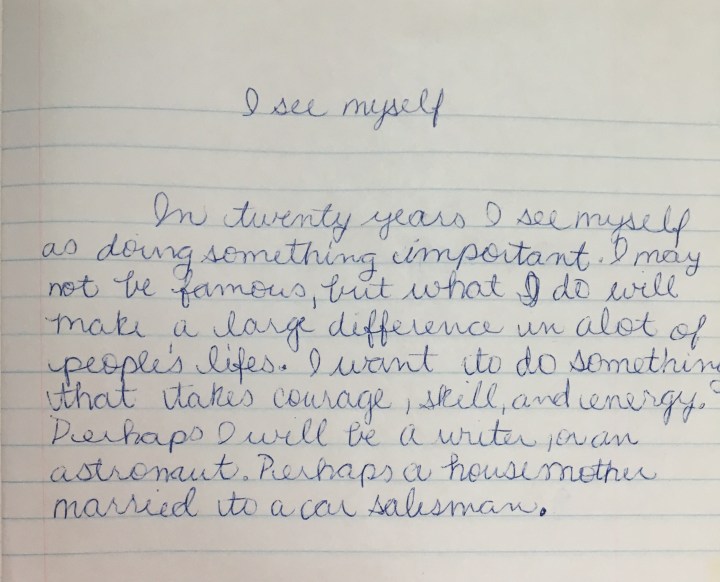 I see myself
In twenty years I see myself
as doing something important. I may
not be famous, but what I do will
make a large difference in alot of
people's lifes. I want to do something
that takes courage, skill, and energy.
Perhaps I will be a writer, or an
astronaut. Perhaps a housemother
married to a car salesman.